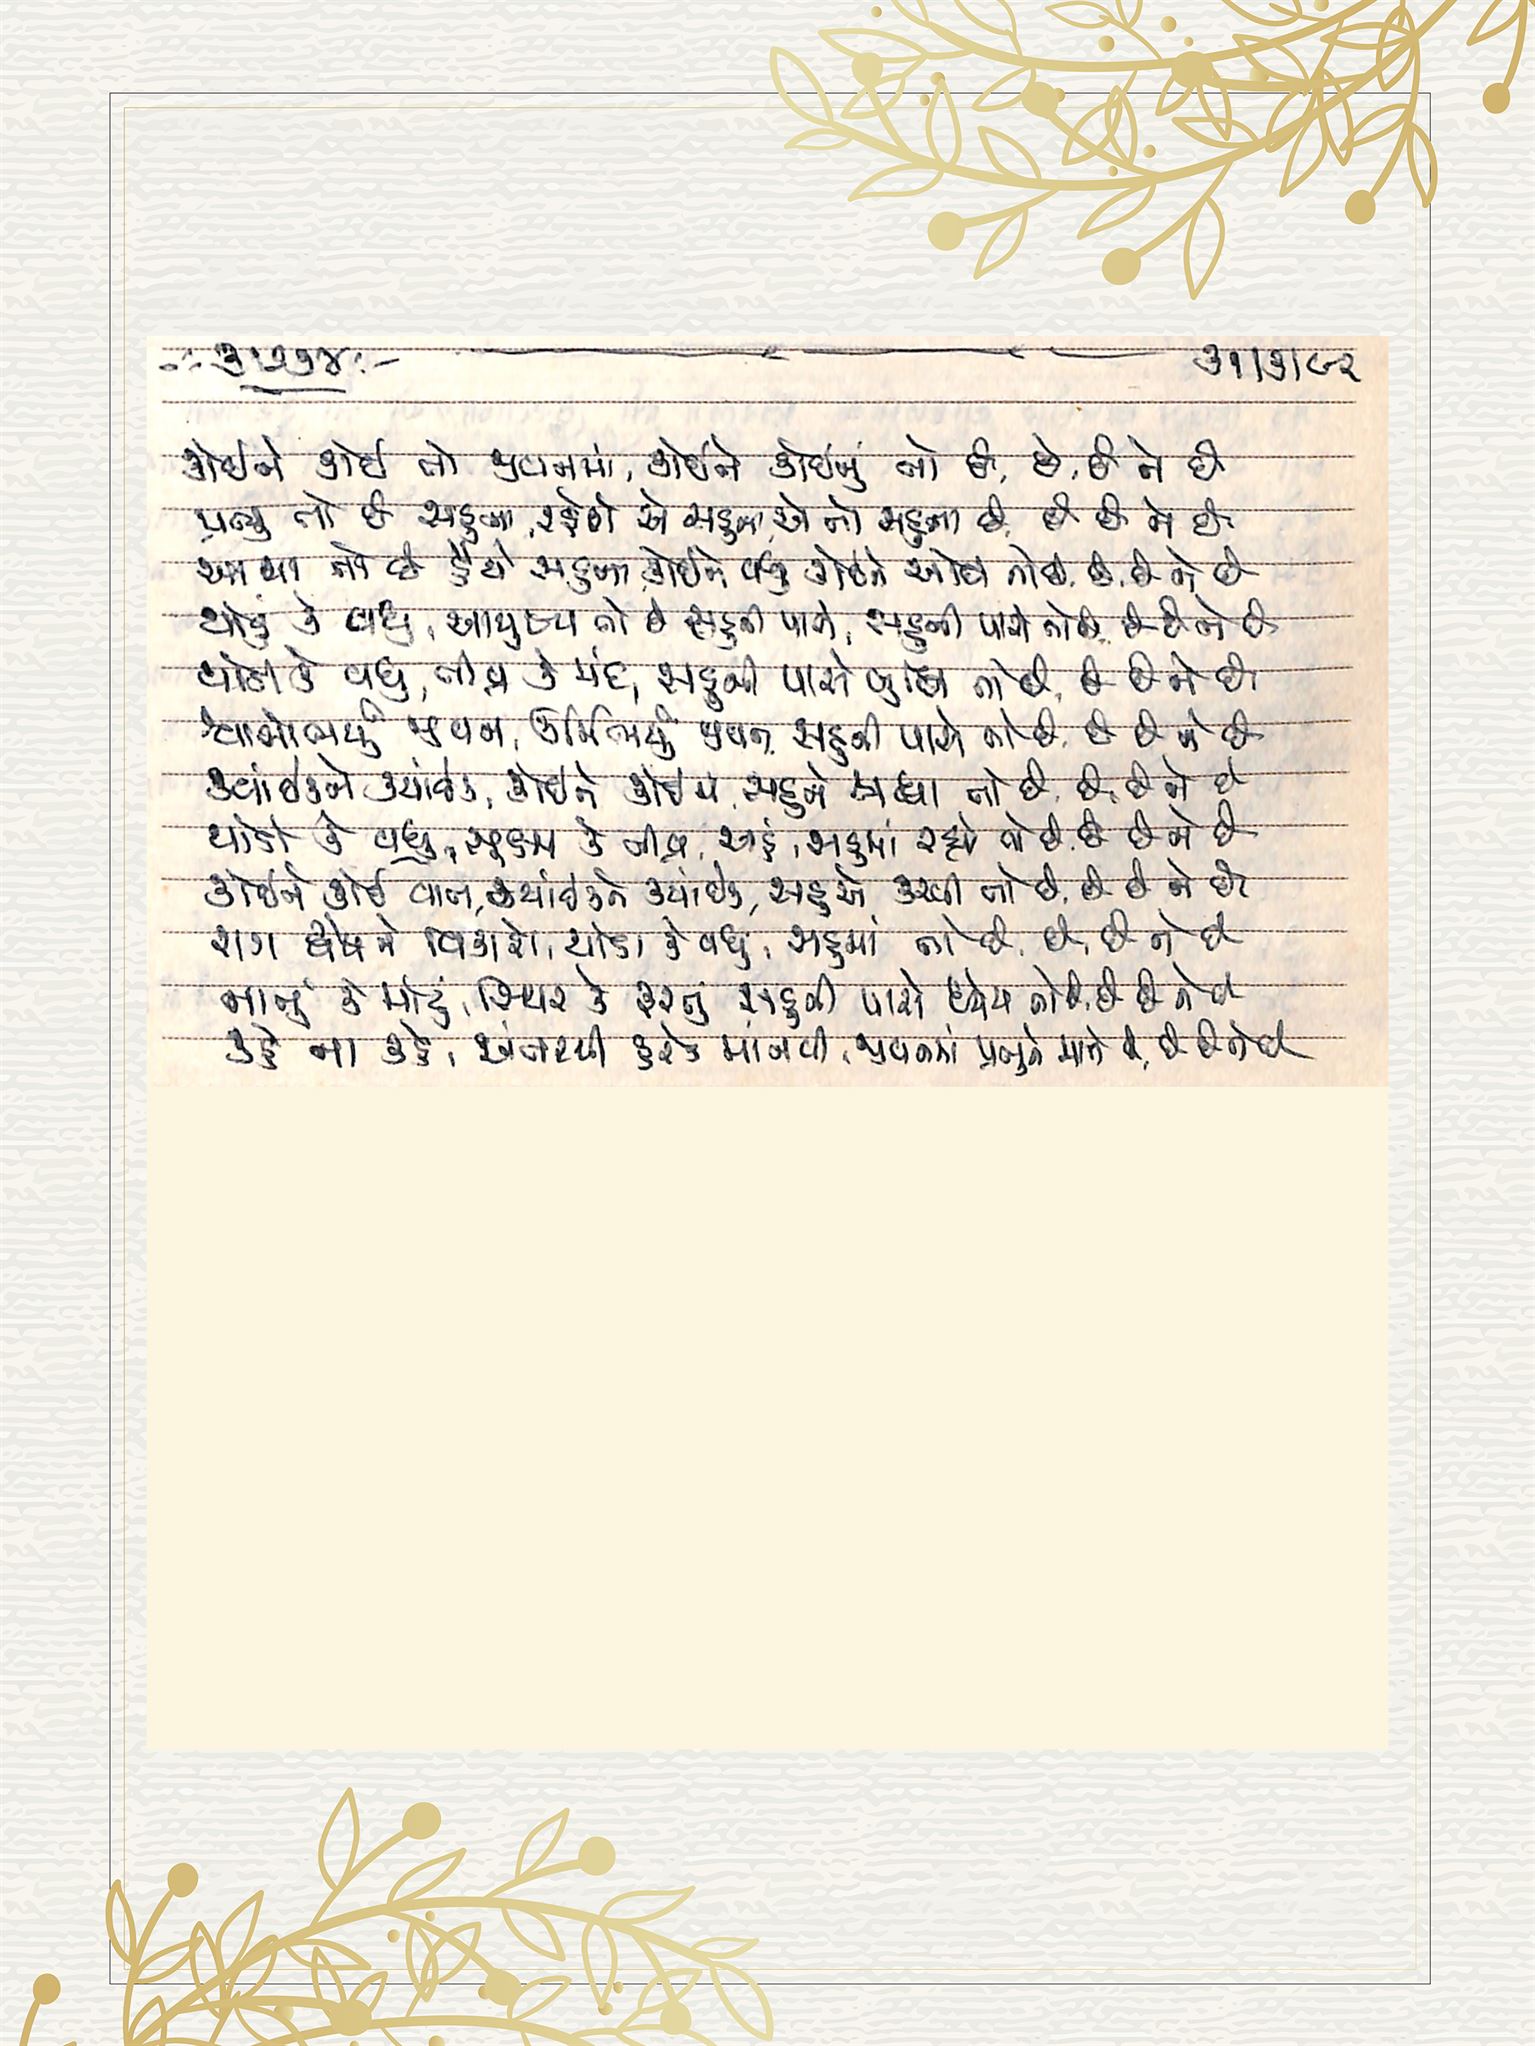 કોઈને કોઈ તો જીવનમાં, કોઈને કોઈનું તો છે, છે, છે ને છે
પ્રભુ તો છે સહુના, રહેશે એ સહુના, એ તો સહુના છે, છે છે ને છે
આશા તો છે હૈયે સહુના, કોઈને વધુ કોઈને ઓછી તો છે, છે, છે ને છે
થોડું કે વધુ, આયુષ્ય તો છે સહુની પાસે, સહુની પાસે તો છે, છે છે ને છે
થોડી કે વધુ, તીવ્ર કે મંદ, સહુની પાસે બુદ્ધિ તો છે, છે છે ને છે
શ્વાસોભર્યું જીવન, ઊર્મિભર્યું જીવન, સહુની પાસે તો છે, છે છે ને છે
ક્યાંઈકને ક્યાંઈક, કોઈને કોઈમાં, સહુને શ્રદ્ધા તો છે, છે, છે ને છે
થોડો કે વધુ, સૂક્ષ્મ કે તીવ્ર, અહં, સહુમાં રહ્યો તો છે, છે છે ને છે
કોઈને કોઈ વાત, ક્યાંઈકને ક્યાંઈક, સહુએ કરવી તો છે, છે છે ને છે
રાગ દ્વેષ ને વિકારો, થોડા કે વધુ, સહુમાં તો છે, છે, છે ને છે
નાનું કે મોટું, સ્થિર કે ફરતું સહુની પાસે ધ્યેય તો છે, છે છે ને છે
કહે ના કહે, અંતરથી હરેક માનવી, જીવનમાં પ્રભુને માને છે, છે છે ને છે